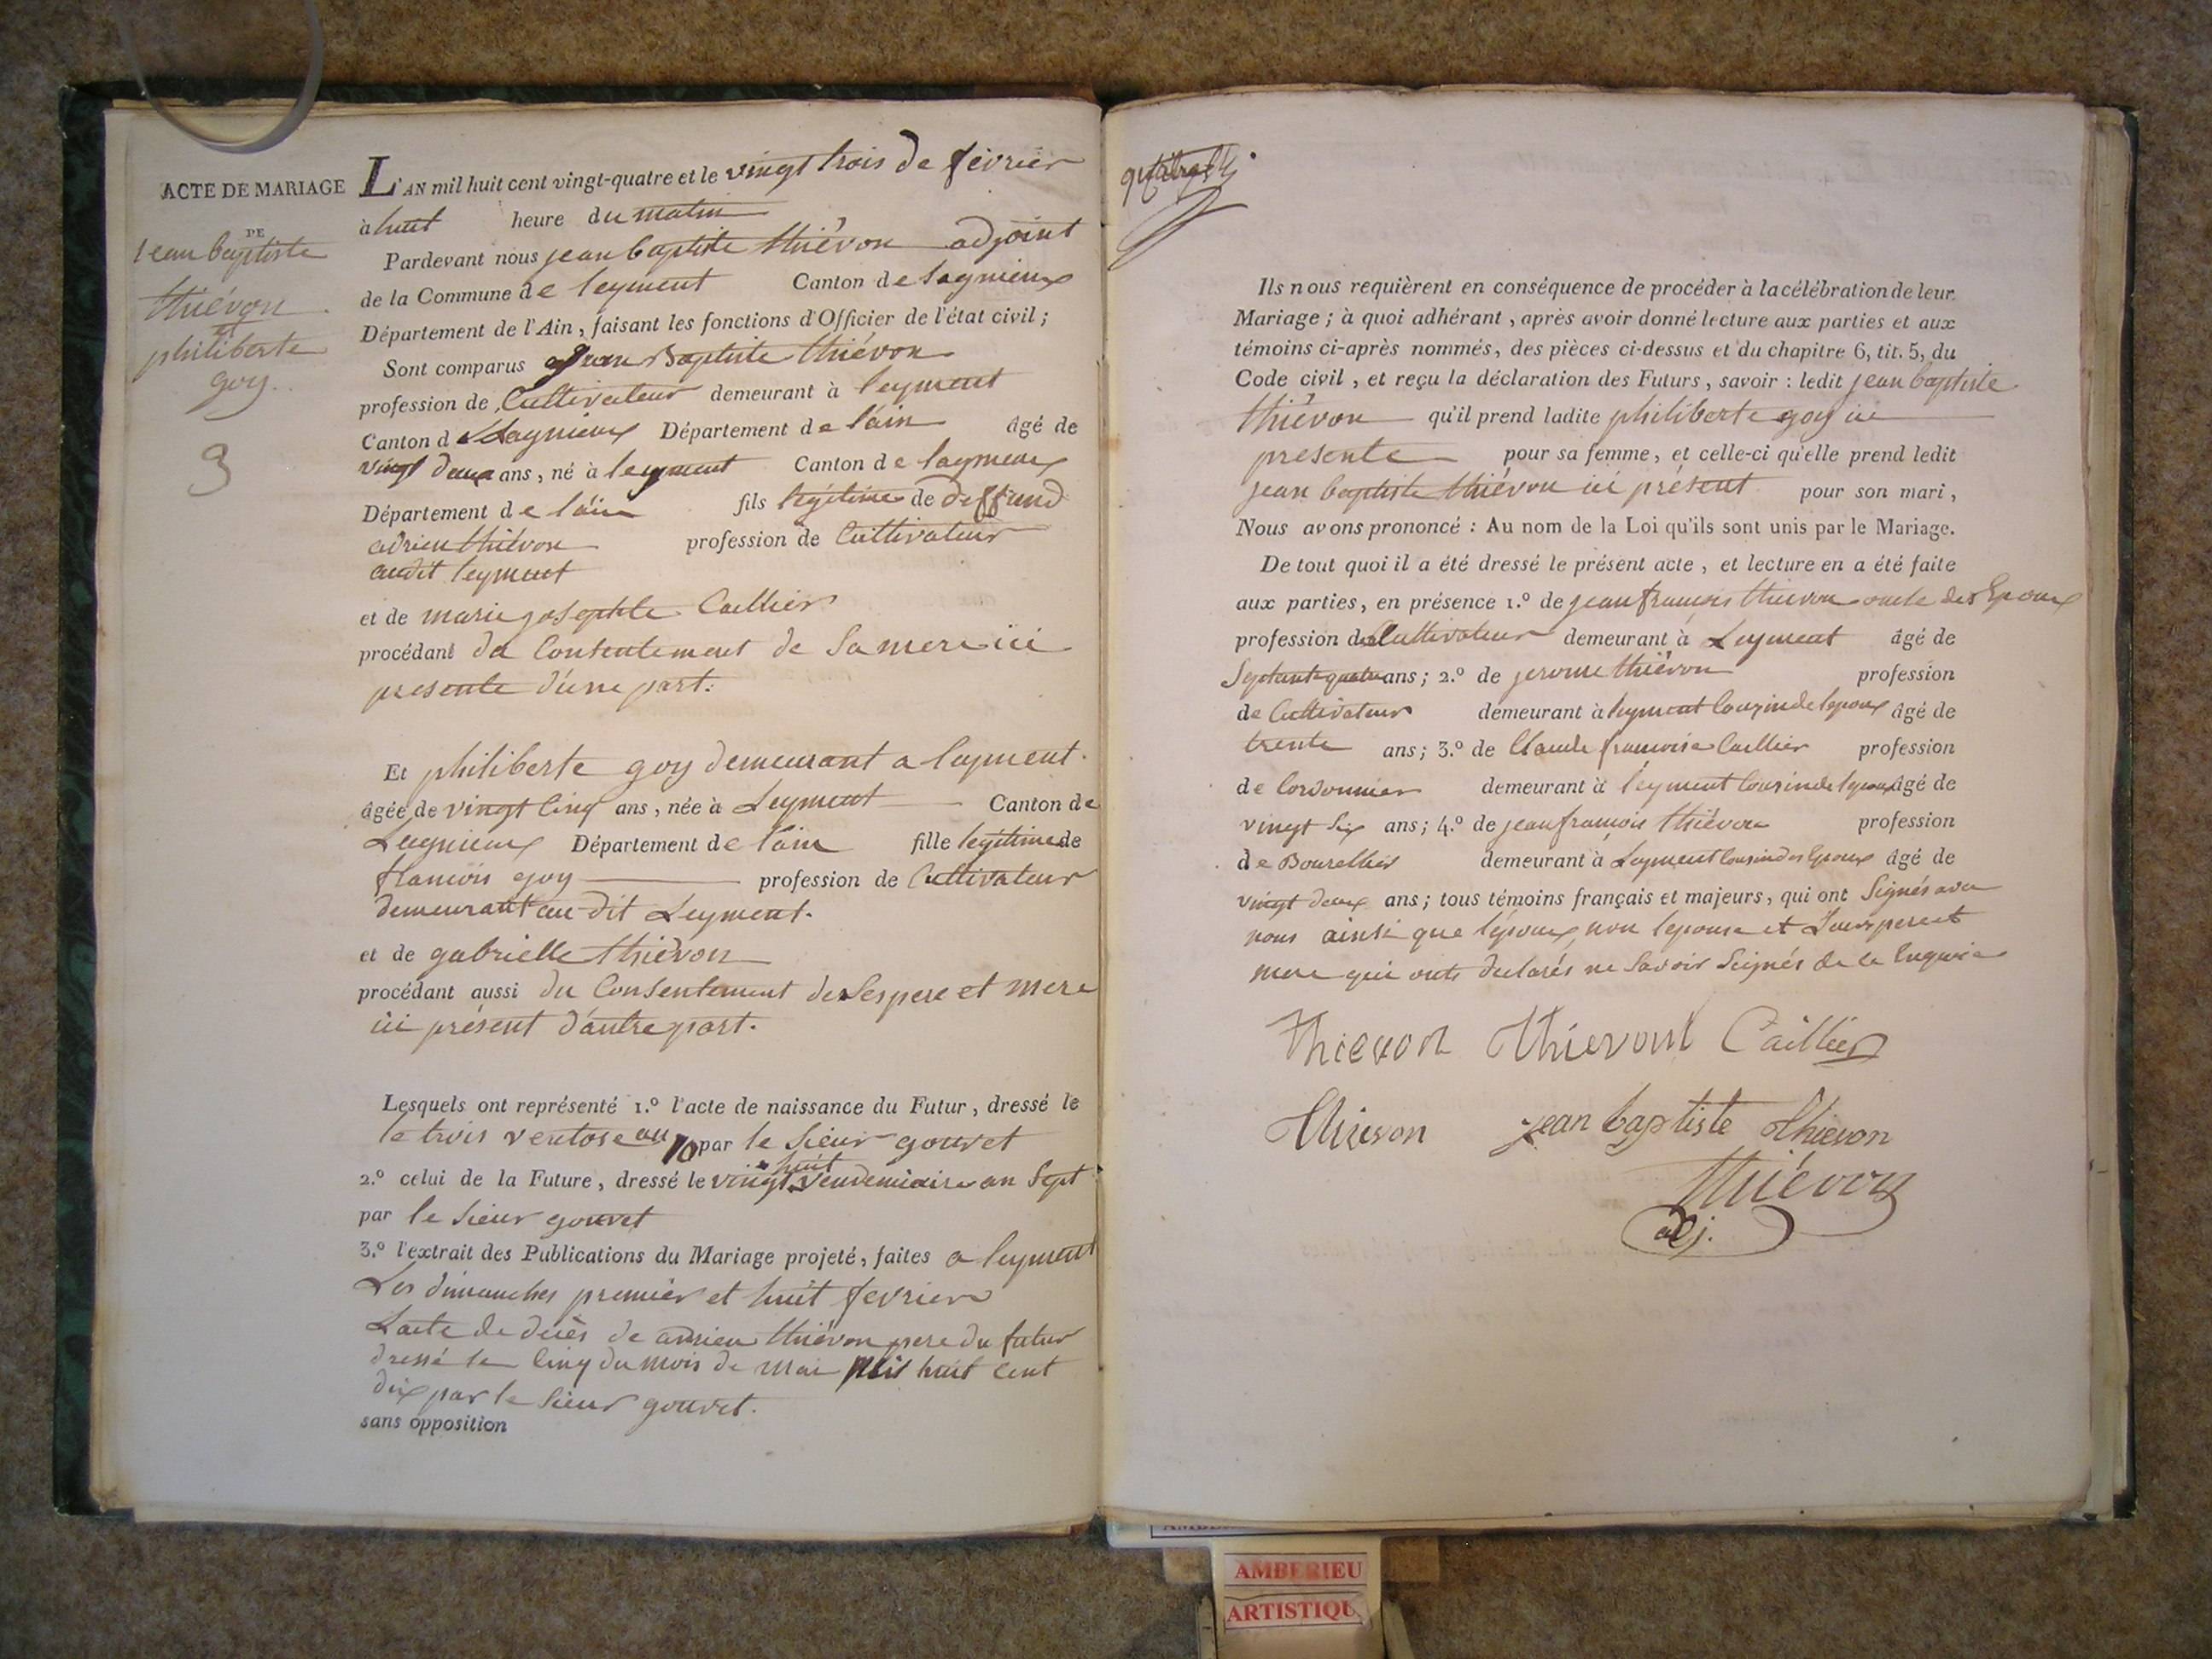 ACTE DE MARIAGE
DE
Jean baptiste
thiévon
et
philiberte
goy.
3
L'AN mil huit cent vingt-quatre et le vingt trois de février
à huit heure du matin
Pardevant nous jean baptiste thiévon adjoint
de la Commune de leyment Canton de lagnieux
Département de l'Ain, faisant les fonctions d'Officier de l'état civil;
Sont comparus Jean Baptiste thiévon
profession de Cultivateur demeurant à leyment
Canton de Lagnieux Département de l'ain âgé de
vingt deux ans, né à leyment Canton de lagnieux
Département de l'ain fils légitime de deffund
adrien thiévon profession de Cultivateur
audit leyment
et de marie josephte Caillier
procédant du Consentement de sa mere ici
presente d'une part.
Et philiberte goy demeurant a leyment.
âgée de vingt Cinq ans, née à Leyment Canton de
Lagnieux Département de l'ain fille légitime de
francois goy profession de Cultivateur
demeurant au-dit Leyment.
et de gabrielle thiévon
procédant aussi du Consentement de Ses pere et mere
ici présent d'autre part.
Lesquels ont représenté 1.º l'acte de naissance du Futur, dressé le
le trois ventose an 10 par le Sieur gouvet
2.º celui de la Future, dressé le vingt huit vendemiaire an Sept
par le Sieur gouvet
3.º l'extrait des Publications du Mariage projeté, faites a leyment
Les dimanches premier et huit fevrier
L'acte de décès de adrien thiévon pere du futur
dressé le Cinq du mois de mai mil huit Cent
dix par le Sieur gouvet.
sans opposition
Ils nous requièrent en conséquence de procéder à la célébration de leur
Mariage; à quoi adhérant, après avoir donné lecture aux parties et aux
témoins ci-après nommés, des pièces ci-dessus et du chapitre 6, tit. 5, du
Code civil, et reçu la déclaration des Futurs, savoir: ledit jean baptiste
thiévon qu'il prend ladite philiberte goy ici
presente pour sa femme, et celle-ci qu'elle prend ledit
jean baptiste thiévon ici présent pour son mari,
Nous avons prononcé: Au nom de la Loi qu'ils sont unis par le Mariage.
De tout quoi il a été dressé le présent acte, et lecture en a été faite
aux parties, en présence 1.º de jean francois thievon oncle des Epoux
profession de Cultivateur demeurant à Leyment âgé de
Septante quatre ans; 2.º de jerome thiévon profession
de Cultivateur demeurant à leyment Cousin de lepoux âgé de
trente ans; 3.º de Claude francoise Caillier profession
de Cordonnier demeurant à leyment Cousin de lepoux âgé de
vingt Six ans; 4.º de jean francois thiévon profession
de Bourellier demeurant à Leyment Cousin des Epoux âgé de
vingt deux ans; tous témoins français et majeurs, qui ont Signés avec
nous ainsi que l'époux, non lepouse et Leurs pere et
mere qui onts declarés ne Savoir Seignés de ce Enquis
Thievon Thievont Caillier
thievon jean baptiste thievon
Thiévon
adj.
AMBERIEU
ARTISTIQU